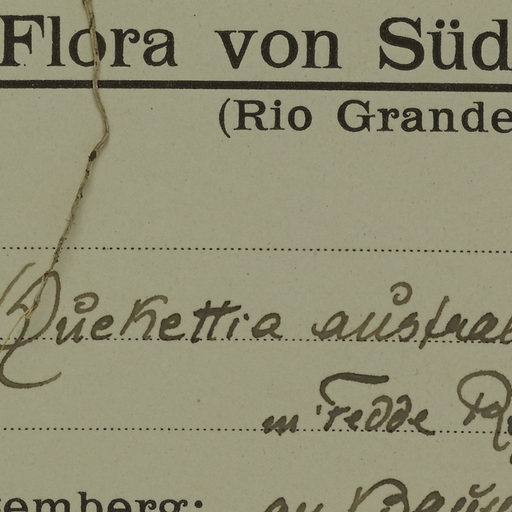 Flora von Süd
(Rio Grande
Quekettia austral
in Fedde R
temberg: an Baum